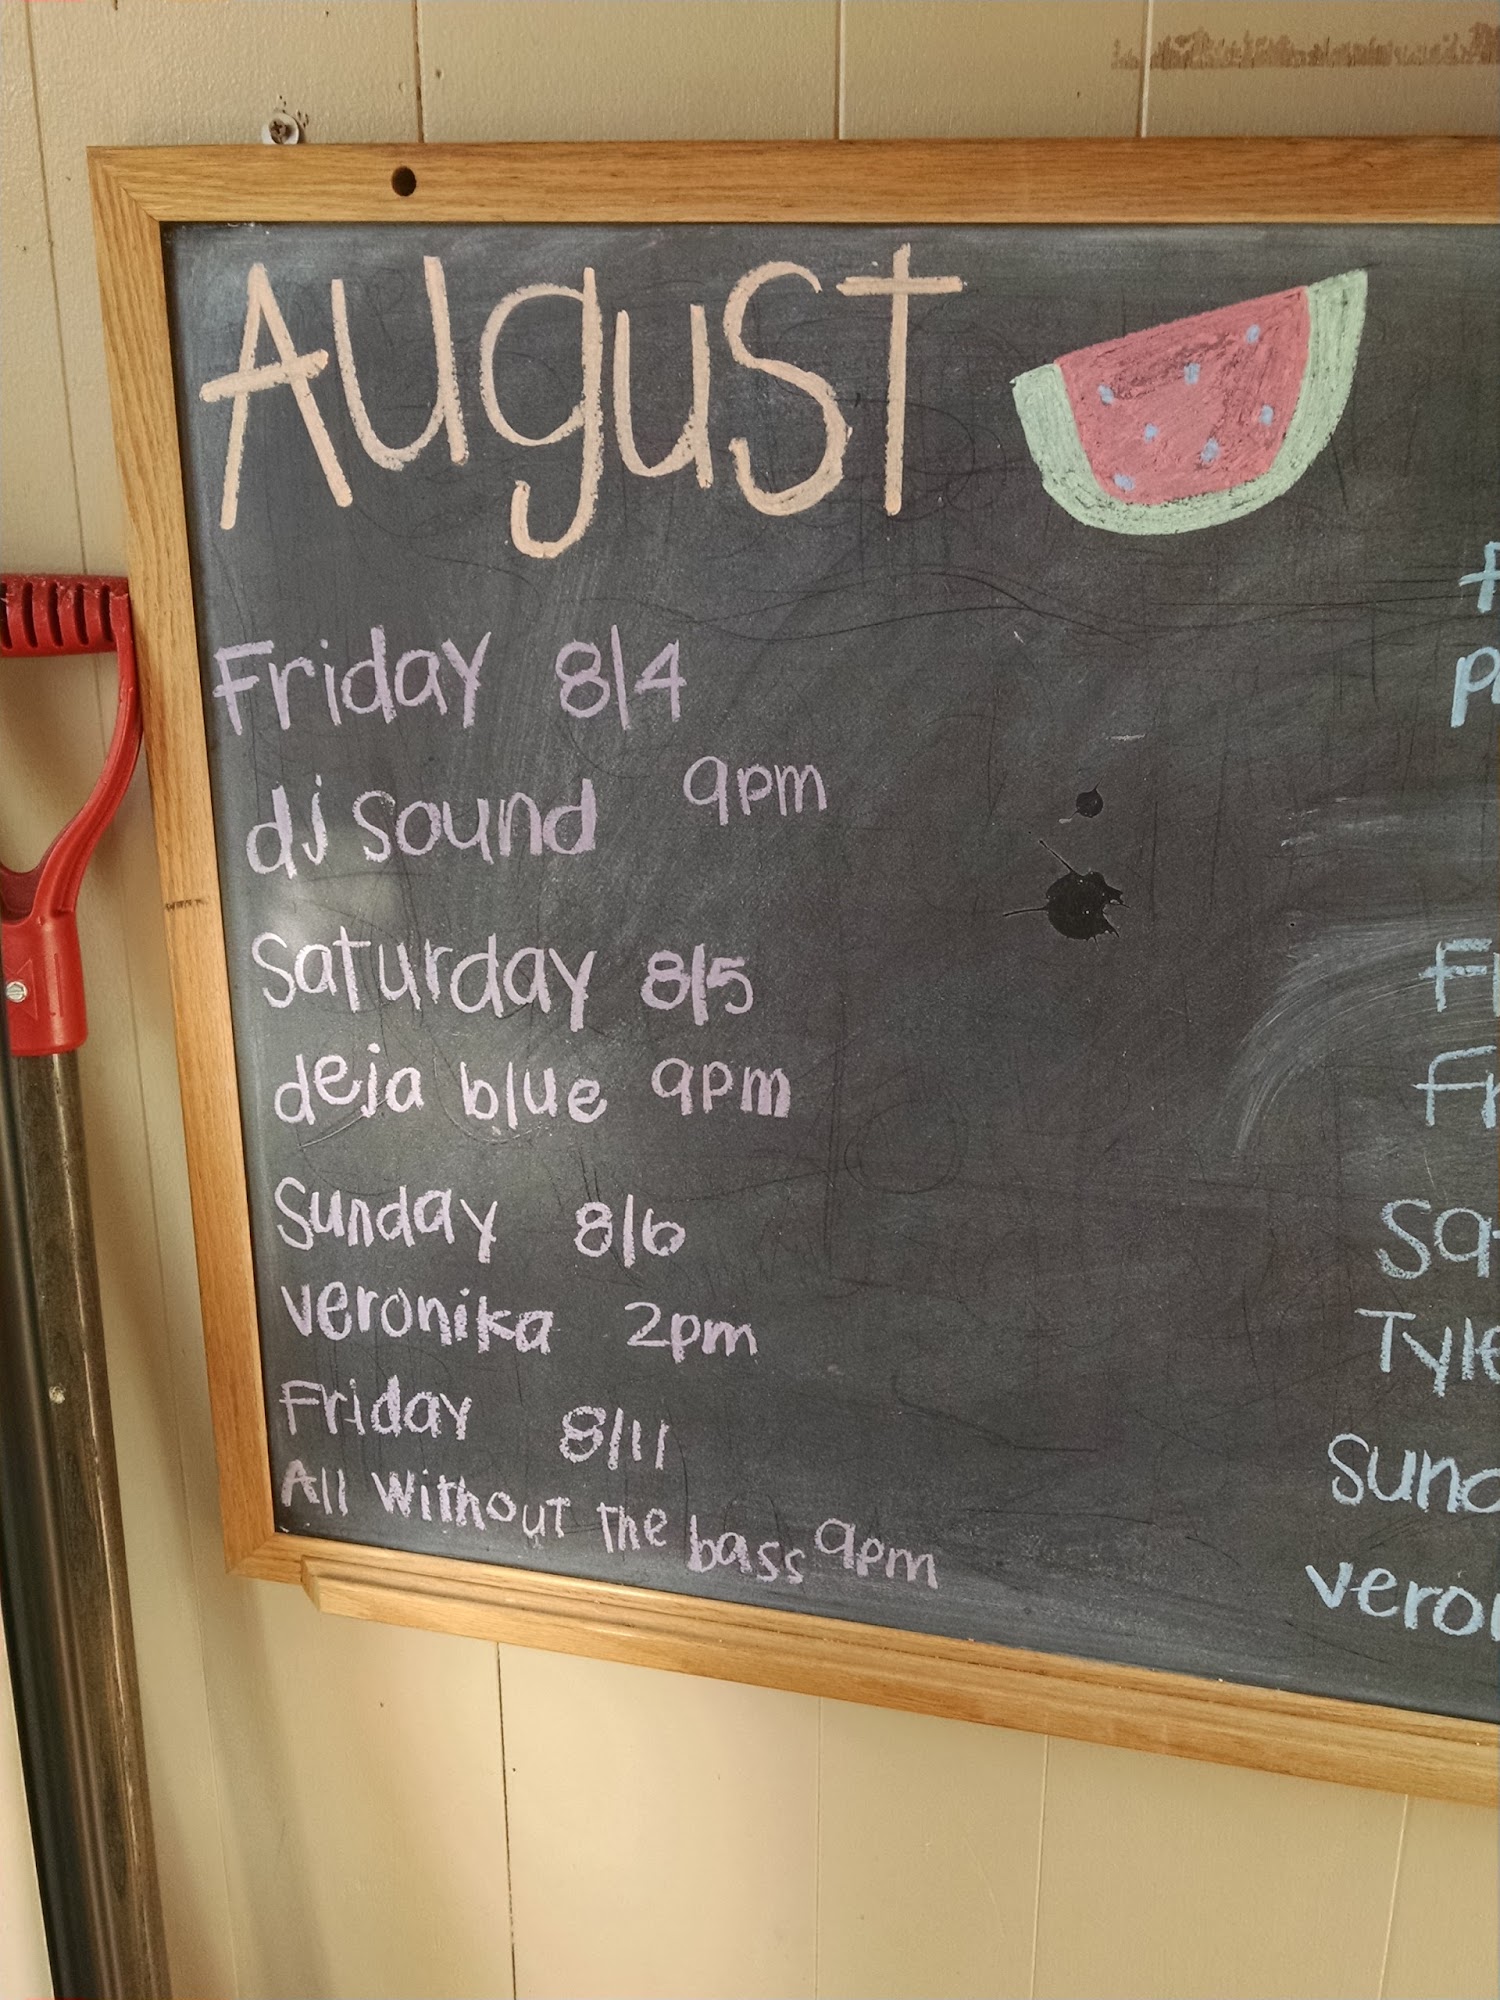 August
Friday 8/4
dj sound 9pm
Saturday 8/5
deja blue 9pm
Sunday 8/6
veronika 2pm
Friday 8/11
All Without The bass 9pm